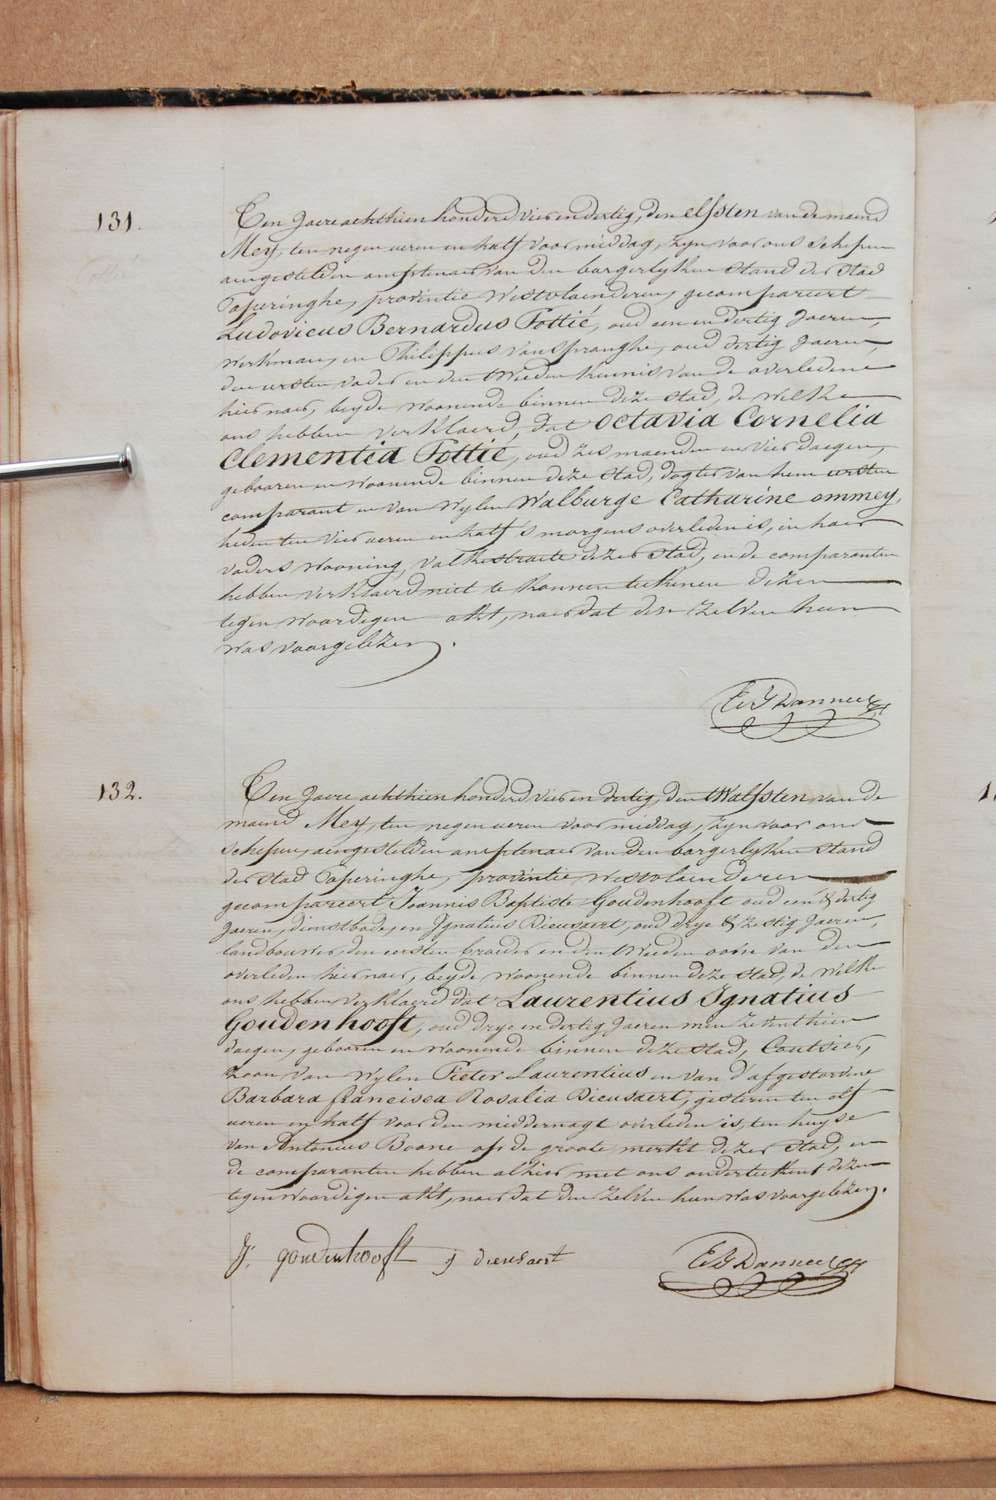 131.
Een Jaere achthien honderd vier en dertig, den elfsten van de maend
Mey, ten negen ueren en half voormiddag, zyn voor ons schepen
aengestelden amptenaer van den borgerlyken stand der stad
Poperinghe, provintie Westvlaenderen, gecompareert
Ludovicus Bernardus Tottié, oud een en dertig Jaeren,
werkman, en Philippus Van Spranghe, oud dertig Jaeren,
den eersten vader en den tweeden kennis van de overledene
hier naer, beyde woonende binnen deze stad, de welke
ons hebben verklaerd, dat Octavia Cornelia
Clementia Tottié, oud zes maenden en vier daegen,
gebooren en woonende binnen deze stad, dogter van hem eersten
comparant en van wylen Walburge Catharine Ommey,
heden ten vier ueren en half 's morgens overleden is, in haer
vaders wooning, Valkestraete dezer stad, en de comparanten
hebben verklaerd niet te konnen teekenen dezen
tegenwoordigen akt, naer dat den zelven hun
was voorgelezen.
E G Danneel
132.
Een Jaere achthien honderd vier en dertig, den twalfsten van de
maend Mey, ten negen ueren voormiddag, zyn voor ons
schepen, aengestelden amptenaer van den borgerlyken stand
der stad Poperinghe, provintie Westvlaenderen
gecompareert Joannis Baptiste Goudenhooft oud een & dertig
Jaeren, dienstbode, en Ignatius Dieusaert, oud drye & zestig Jaeren,
landbouwer, den eersten broeder en den tweeden oom van den
overleden hier naer, beyde woonende binnen deze stad, de welke
ons hebben verklaerd dat Laurentius Ignatius
Goudenhooft, oud drye en dertig Jaeren min zeventhien
daegen, gebooren en woonende binnen deze stad, Coutsier,
zoon van wylen Pieter Laurentius en van d'afgestorvene
Barbara francisca Rosalia Dieusaert, gisteren ten elf
ueren en half voor den middernagt overleden is, ten huyse
van Antonius Boone op de groote merkt dezer stad, en
de comparanten hebben alhier met ons onderteekent dezen
tegenwoordigen akt, naer dat den zelven hun was voorgelezen.
J. goudenhooft j dieusaert
E G Danneel